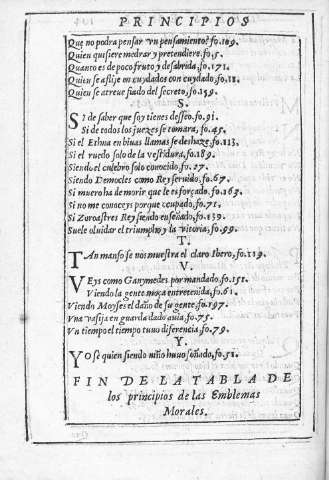 PRINCIPIOS
Que no podra pensar vn pensamiento? fo.189.
Quien quisiere medrar y pretendiere. fo.5.
Quanto es de poco fruto y desabrida, fo.171.
Quien se aflije en cuydados con cuydado, fo.11.
Quien se atreue fiado del secreto, fo.159.
S.
SI de saber que soy tienes desseo. fo.91.
Si de todos los juezes se tomara, fo.45.
Si el Ethna en biuas llamas se deshaze, fo.113.
Si el ruedo solo de la vestidura. fo.189.
Siendo el culebro solo conocido. fo.27.
Siendo Democles como Rey seruido, fo.67.
Si muero ha de morir que le es forçado, fo.163.
Si no me conoceys porque ocupado, fo.71.
Si Zoroastres Rey siendo enseñado, fo.139.
Suele oluidar el triumpho y la vitoria, fo.99.
T.
TAn manso se nos muestra el claro Ibero, fo.119.
V.
VEys como Ganymedes por mandado, fo.151.
Viendo la gente moça entretenida, fo.61.
Viendo Moyses el daño de su gente, fo.197.
Vna vasija en guarda dado auia, fo.75.
Vn tiempo el tiempo tuuo diferencia, fo.79.
Y
YO se quien siendo niño huuo soñado, fo.51.
FIN DE LA TABLA DE
los principios de las Emblemas
Morales.